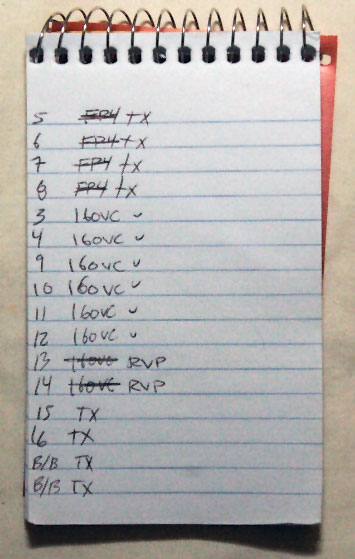 5 FP4 TX
6 FP4 TX
7 FP4 TX
8 FP4 TX
3 160VC ✓
4 160VC ✓
9 160VC ✓
10 160VC ✓
11 160VC ✓
12 160VC ✓
13 160VC RVP
14 160VC RVP
15 TX
16 TX
B/B TX
B/B TX